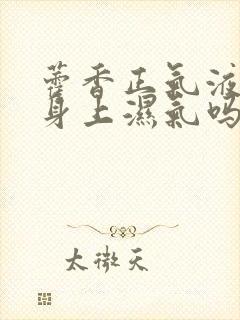 藿香正氣液
身上濕氣嗎
太微天